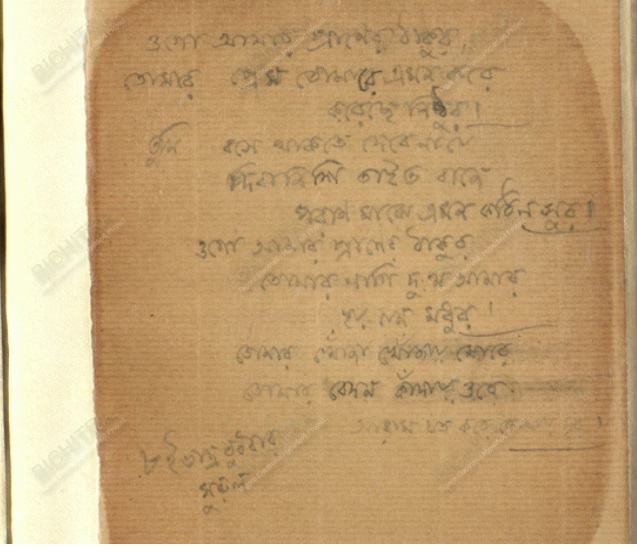 ওগো আমার প্রাণের ঠাকুর,
তোমার প্রেম তোমারে এমন করে
করেছে নিষ্ঠুর।
তুমি বসে থাকতে দেবে না যে
দিবানিশি তাইত বাজে
পরাণ মাঝে এমন কঠিন সুর।
ওগো আমার প্রাণের ঠাকুর
তোমার লাগি দুঃখ আমার
হয় যেন মধুর।
তোমার খোঁজা খোঁজায় মোরে
তোমার বেদন কাঁদায় ওরে
আরাম যত করে কোথায় দূর।
৮ই ভাদ্র বুধবার
সুরুল